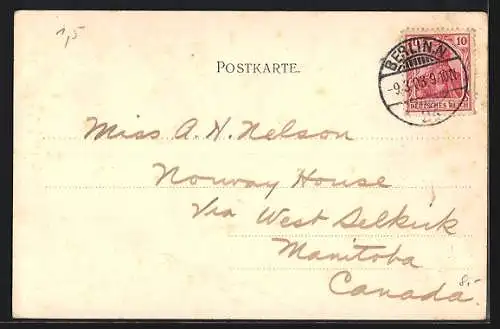 1,5
10
BERLIN.N.
-9.3.03.9-10N.
DEUTSCHES REICH
POSTKARTE.
Miss A. H. Nelson
Norway House
Via West Selkirk
Manitoba
Canada
8.-